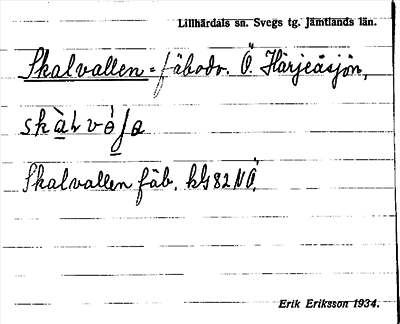 Lillhärdals sn. Svegs tg. Jämtlands län.
Skalvallen = fäbodv. Ö. Härjeåsjön,
Skalvallen fäb. kbl 82 NÖ.
Erik Eriksson 1934.